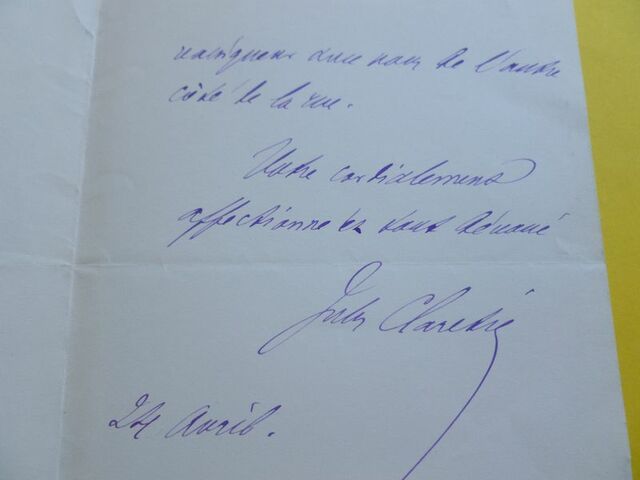 de l'autre
côté de la rue.
Votre cordialement
affectionné et tout dévoué
Jules Claretie
24 Avril.